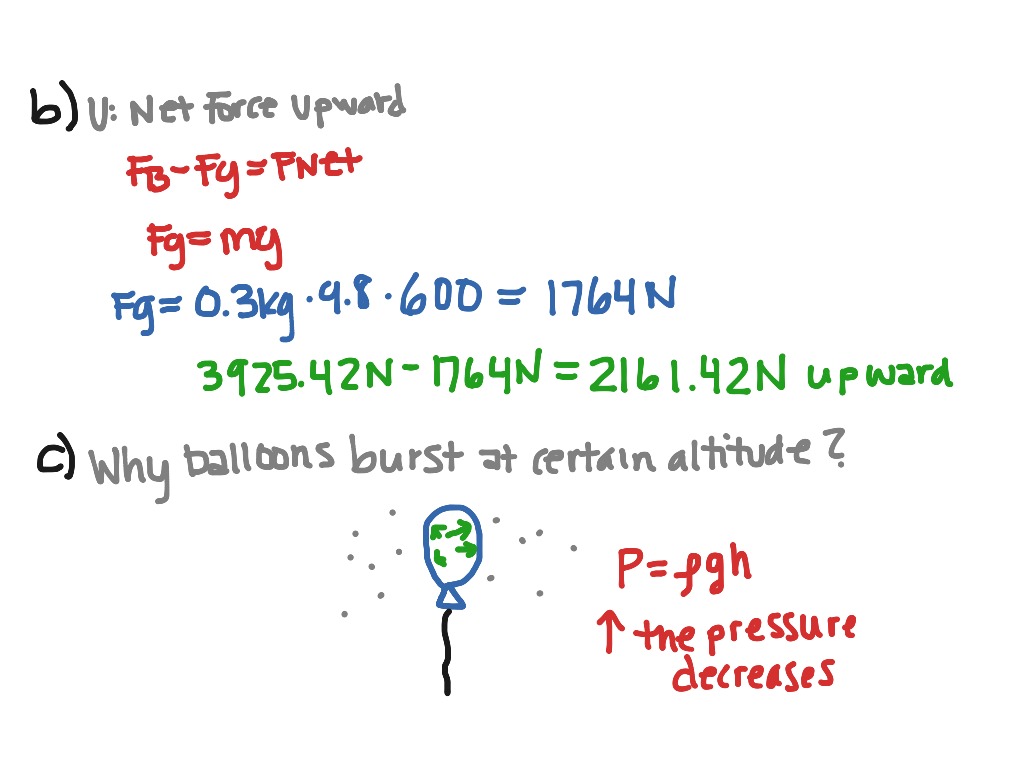 b) U: Net Force Upward
FB - Fg = FNet
Fg = mg
Fg = 0.3kg · 9.8 · 600 = 1764 N
3925.42N - 1764N = 2161.42N upward
c) Why balloons burst at certain altitude?
P = ρgh
↑ the pressure
decreases